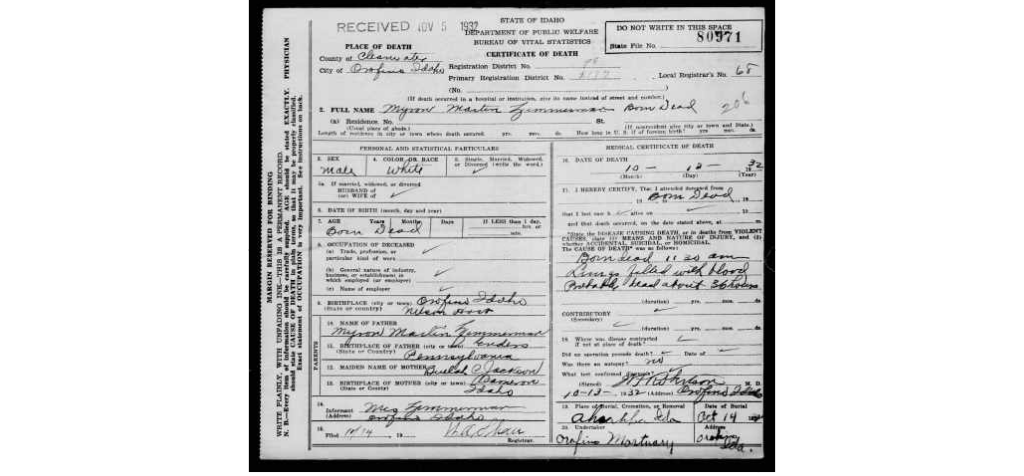 RECEIVED NOV 5 1932
STATE OF IDAHO
DEPARTMENT OF PUBLIC WELFARE
BUREAU OF VITAL STATISTICS
CERTIFICATE OF DEATH
DO NOT WRITE IN THIS SPACE
80971
State File No.
PLACE OF DEATH
County of Clearwater
City of Orofino Idaho
Registration District No.
Primary Registration District No.
Local Registrar's No. 68
(No.
(If death occurred in a hospital or institution, give its name instead of street and number.)
2. FULL NAME Myron Martin Zimmerman Born Dead
(a) Residence No. St.
(Usual place of abode.) (If nonresident give city or town and State.)
Length of residence in city or town where death occurred. yrs. mos. ds. How long in U. S. if of foreign birth? yrs. mos. ds.
PERSONAL AND STATISTICAL PARTICULARS
3. SEX 4. COLOR OR RACE 5. Single, Married, Widowed, or Divorced (write the word.)
Male White
5a If married, widowed, or divorced
HUSBAND of
(or) WIFE of
6. DATE OF BIRTH (month, day and year)
7. AGE Years Months Days If LESS than 1 day,
Born Dead
8. OCCUPATION OF DECEASED
(a) Trade, profession, or
particular kind of work
(b) General nature of industry,
business, or establishment in
which employed (or employer)
(c) Name of employer
9. BIRTHPLACE (city or town) Orofino Idaho
(State or country)
10. NAME OF FATHER
Myron Martin Zimmerman
11. BIRTHPLACE OF FATHER (city or town) Enders
(State or Country) Pennsylvania
12. MAIDEN NAME OF MOTHER Jackson
13. BIRTHPLACE OF MOTHER (city or town) Cameron
Idaho
PARENTS
14.
Informant Mrs Zimmerman
(Address) Orofino Idaho
15.
Filed 10/14, 19
Registrar.
MEDICAL CERTIFICATE OF DEATH
16. DATE OF DEATH
10 - 12 - 1932
(Month) (Day) (Year)
17. I HEREBY CERTIFY, That I attended deceased from
Born Dead
that I last saw h alive on
and that death occurred, on the date stated above, at m.
*State the DISEASE CAUSING DEATH, or in deaths from VIOLENT
CAUSES, state (1) MEANS AND NATURE OF INJURY, and (2)
whether ACCIDENTAL, SUICIDAL, or HOMICIDAL.
The CAUSE OF DEATH* was as follows:
Born dead 11 20 am
Lungs filled with blood
Probably dead about 36 hours
(duration) yrs. mos. ds.
CONTRIBUTORY
(Secondary)
(duration) yrs. mos. ds.
18. Where was disease contracted
if not at place of death?
Did an operation precede death? Date of
Was there an autopsy? no
What test confirmed
(Signed) M. D.
10-13-, 1932 (Address) Orofino Idaho
19. Place of Burial, Cremation, or Removal Date of Burial
Ahsahka Ida Oct 14 1932
20. Undertaker Address
Orofino Mortuary Orofino Ida.
MARGIN RESERVED FOR BINDING
WRITE PLAINLY, WITH UNFADING INK—THIS IS A PERMANENT RECORD.
N. B.—Every item of information should be carefully supplied. AGE should be stated EXACTLY. PHYSICIAN
should state CAUSE OF DEATH in plain terms, so that it may be properly classified.
Exact statement of OCCUPATION is very important. See instructions on back.